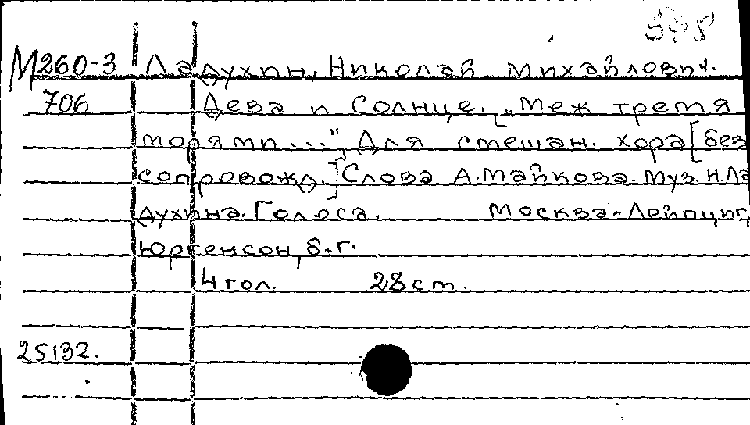 М260-3 Ладухин, Николай Михайлович.
706 Дева и Солнце. ["Меж тремя
морями..."]. Для смешан. хора [без
сопровожд.] Слова А. Майкова. Муз. Н. Ла
духина. Голоса. Москва-Лейпциг,
Юргенсон, б.г.
4 гол. 28 cm.
25132.